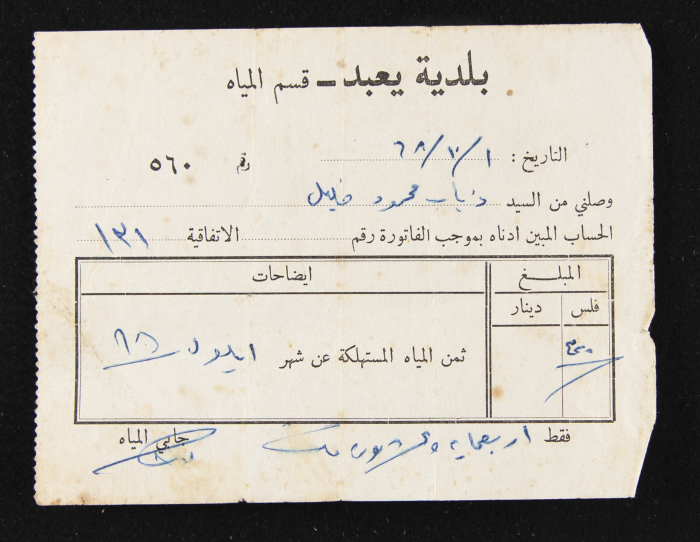 بلدية يعبد ـ قسم المياه
التاريخ : ١/١٠/٦٨ رقم ٥٦٠
وصلني من السيد ذياب محمود خليل
الحساب المبين ادناه بموجب الفاتورة رقم الاتفاقية ١٣١
المبلـــغ ايضاحات
فلس دينار
ثمن المياه المستهلكة عن شهر ايلول ٦٨
فقط اربعماية وعشرون فلس جابي المياه